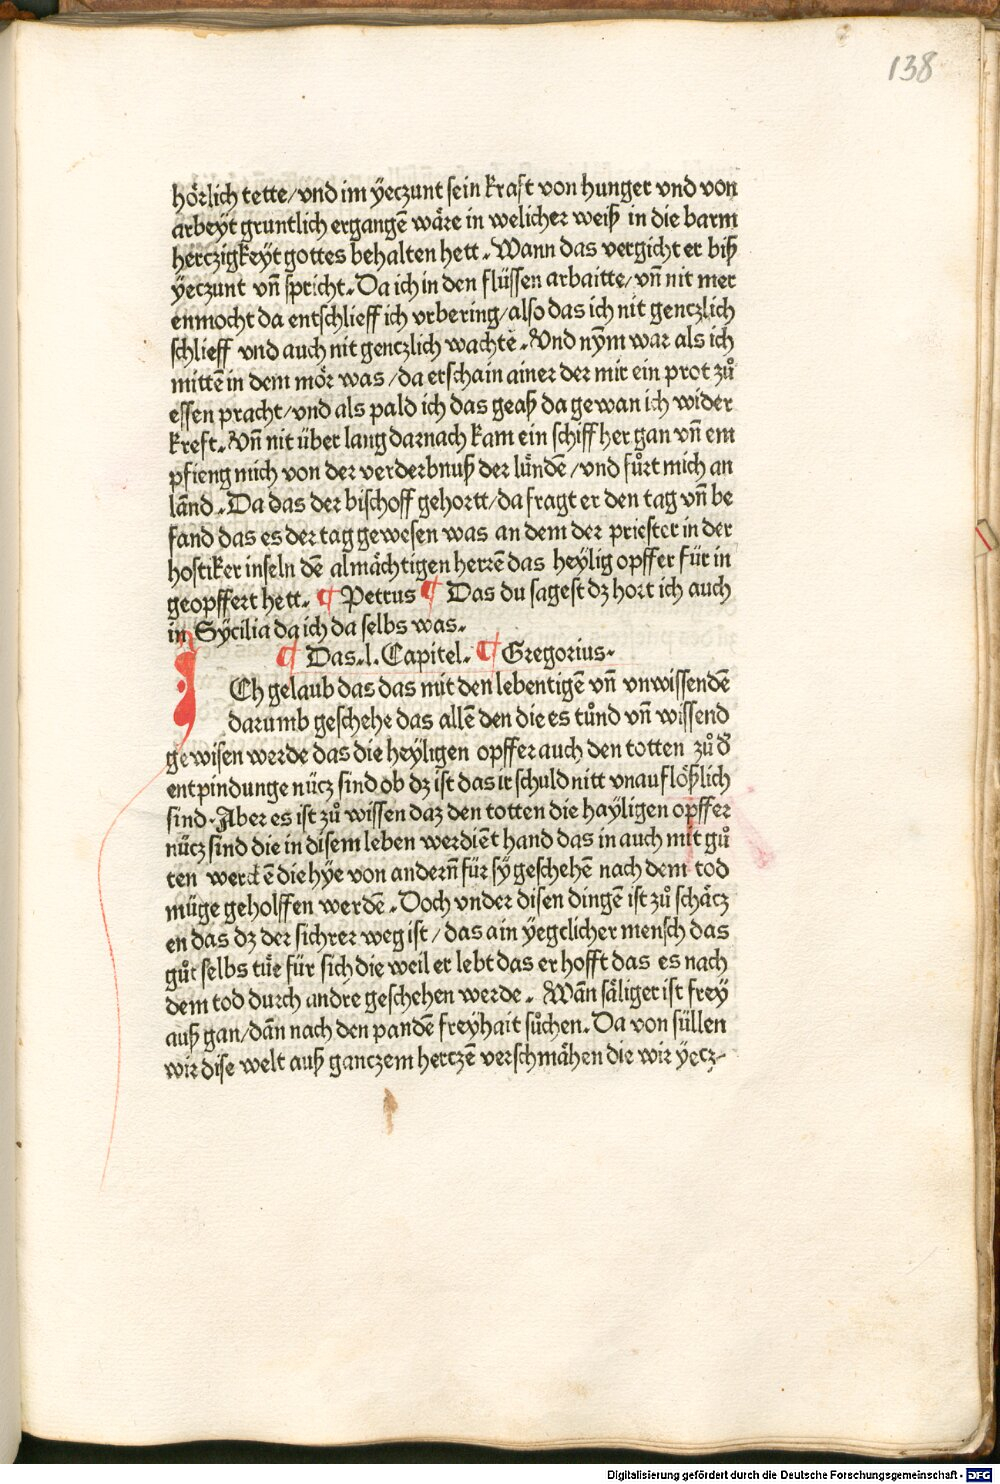 138
hörlich tette/vnd im yeczunt sein kraft von hunger vnd von
arbeyt gruntlich ergangē wäre in welicher weiß in die barm
herczigkeyt gottes behalten hett. Wann das vergicht er biß
yeczunt vn̄ spricht. Da ich in den flüssen arbaitte/vn̄ nit mer
enmocht da entschlieff ich vrbering/also das ich nit genczlich
schlieff vnd auch nit genczlich wachte. Vnd nym war als ich
mittē in dem mör was/da erschain ainer der mir ein prot zů
essen pracht/vnd als pald ich das geaß da gewan ich wider
kreft. Vn̄ nit über lang darnach kam ein schiff her gan vn̄ em
pfieng mich von der verderbnuß der lündē/vnd fůrt mich an
lānd. Da das der bischoff gehortt/da fragt er den tag vn̄ be
fand das es der tag gewesen was an dem der priester in der
hostiker inseln dē almächtigen herrē das heylig opffer für in
geopffert hett. ¶ Petrus ¶ Das du sagest dz hort ich auch
in Sycilia da ich da selbs was.
¶ Das .l. Capitel. ¶ Gregorius.
ICh gelaub das das mit den lebentigē vn̄ vnwissendē
darumb geschehe das allē den die es tůnd vn̄ wissend
gewisen werde das die heyligen opffer auch den totten zů d̄
entpindunge nücz sind ob dz ist das ir schuld nitt vnauflößlich
sind. Aber es ist zů wissen daz den totten die hayligen opffer
nücz sind die in disem leben werdiēt hand das in auch mit gů
ten werckē die hye von andern̄ für sy geschehē nach dem tod
müge geholffen werdē. Doch vnder disen dingē ist zů schäcz
en das dz der sichrer weg ist/das ain yegclicher mensch das
gůt selbs tüe für sich die weil er lebt das er hofft das es nach
dem tod durch andre geschehen werde. Wān säliger ist frey
auß gan/dān nach den pandē freyhait sůchen. Da von süllen
wir dise welt auß ganczem herczē verschmähen die wir yecz-
Digitalisierung gefördert durch die Deutsche Forschungsgemeinschaft - DFG